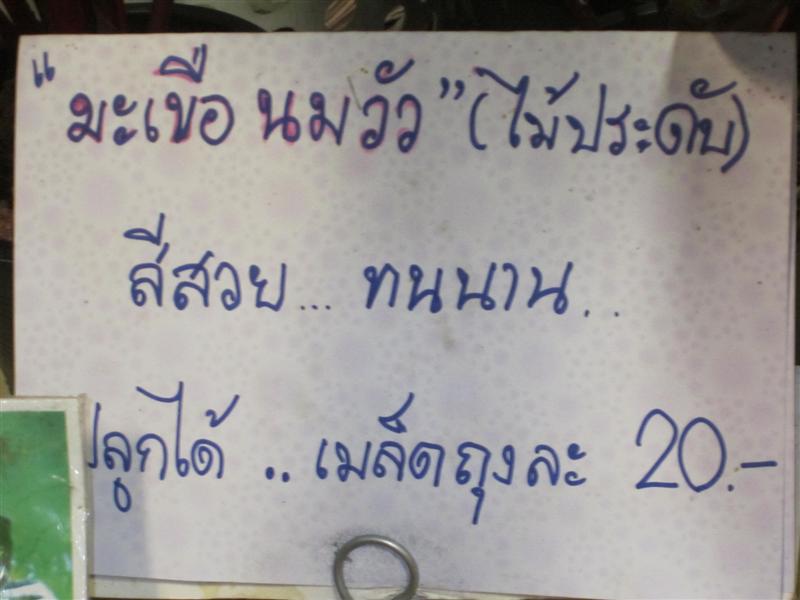 "มะเขือ นมวัว" (ไม้ประดับ)
สีสวย... ทนนาน..
ปลูกได้ .. เมล็ดถุงละ 20.-